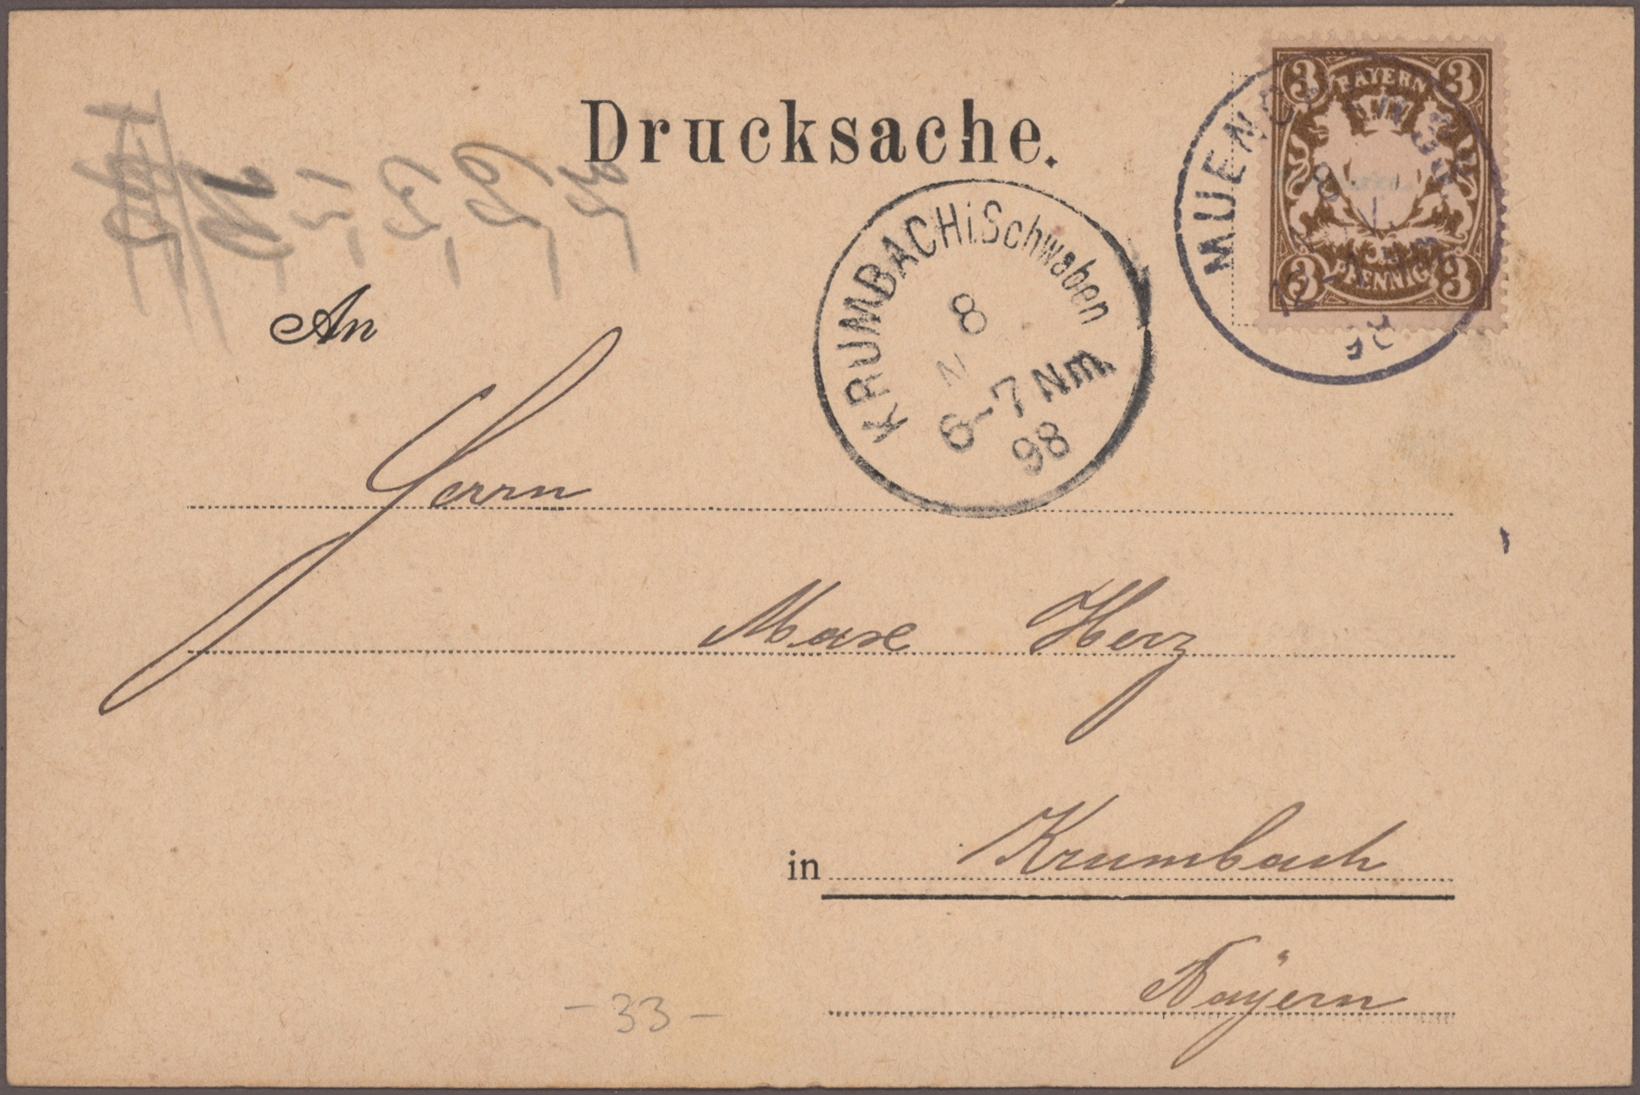 Drucksache.
3 BAYERN 3
3 PFENNIG 3
KRUMBACH i. Schwaben
8
6-7 Nm.
98
An
Herrn
Max Herz
in Krumbach
Bayern
- 33 -